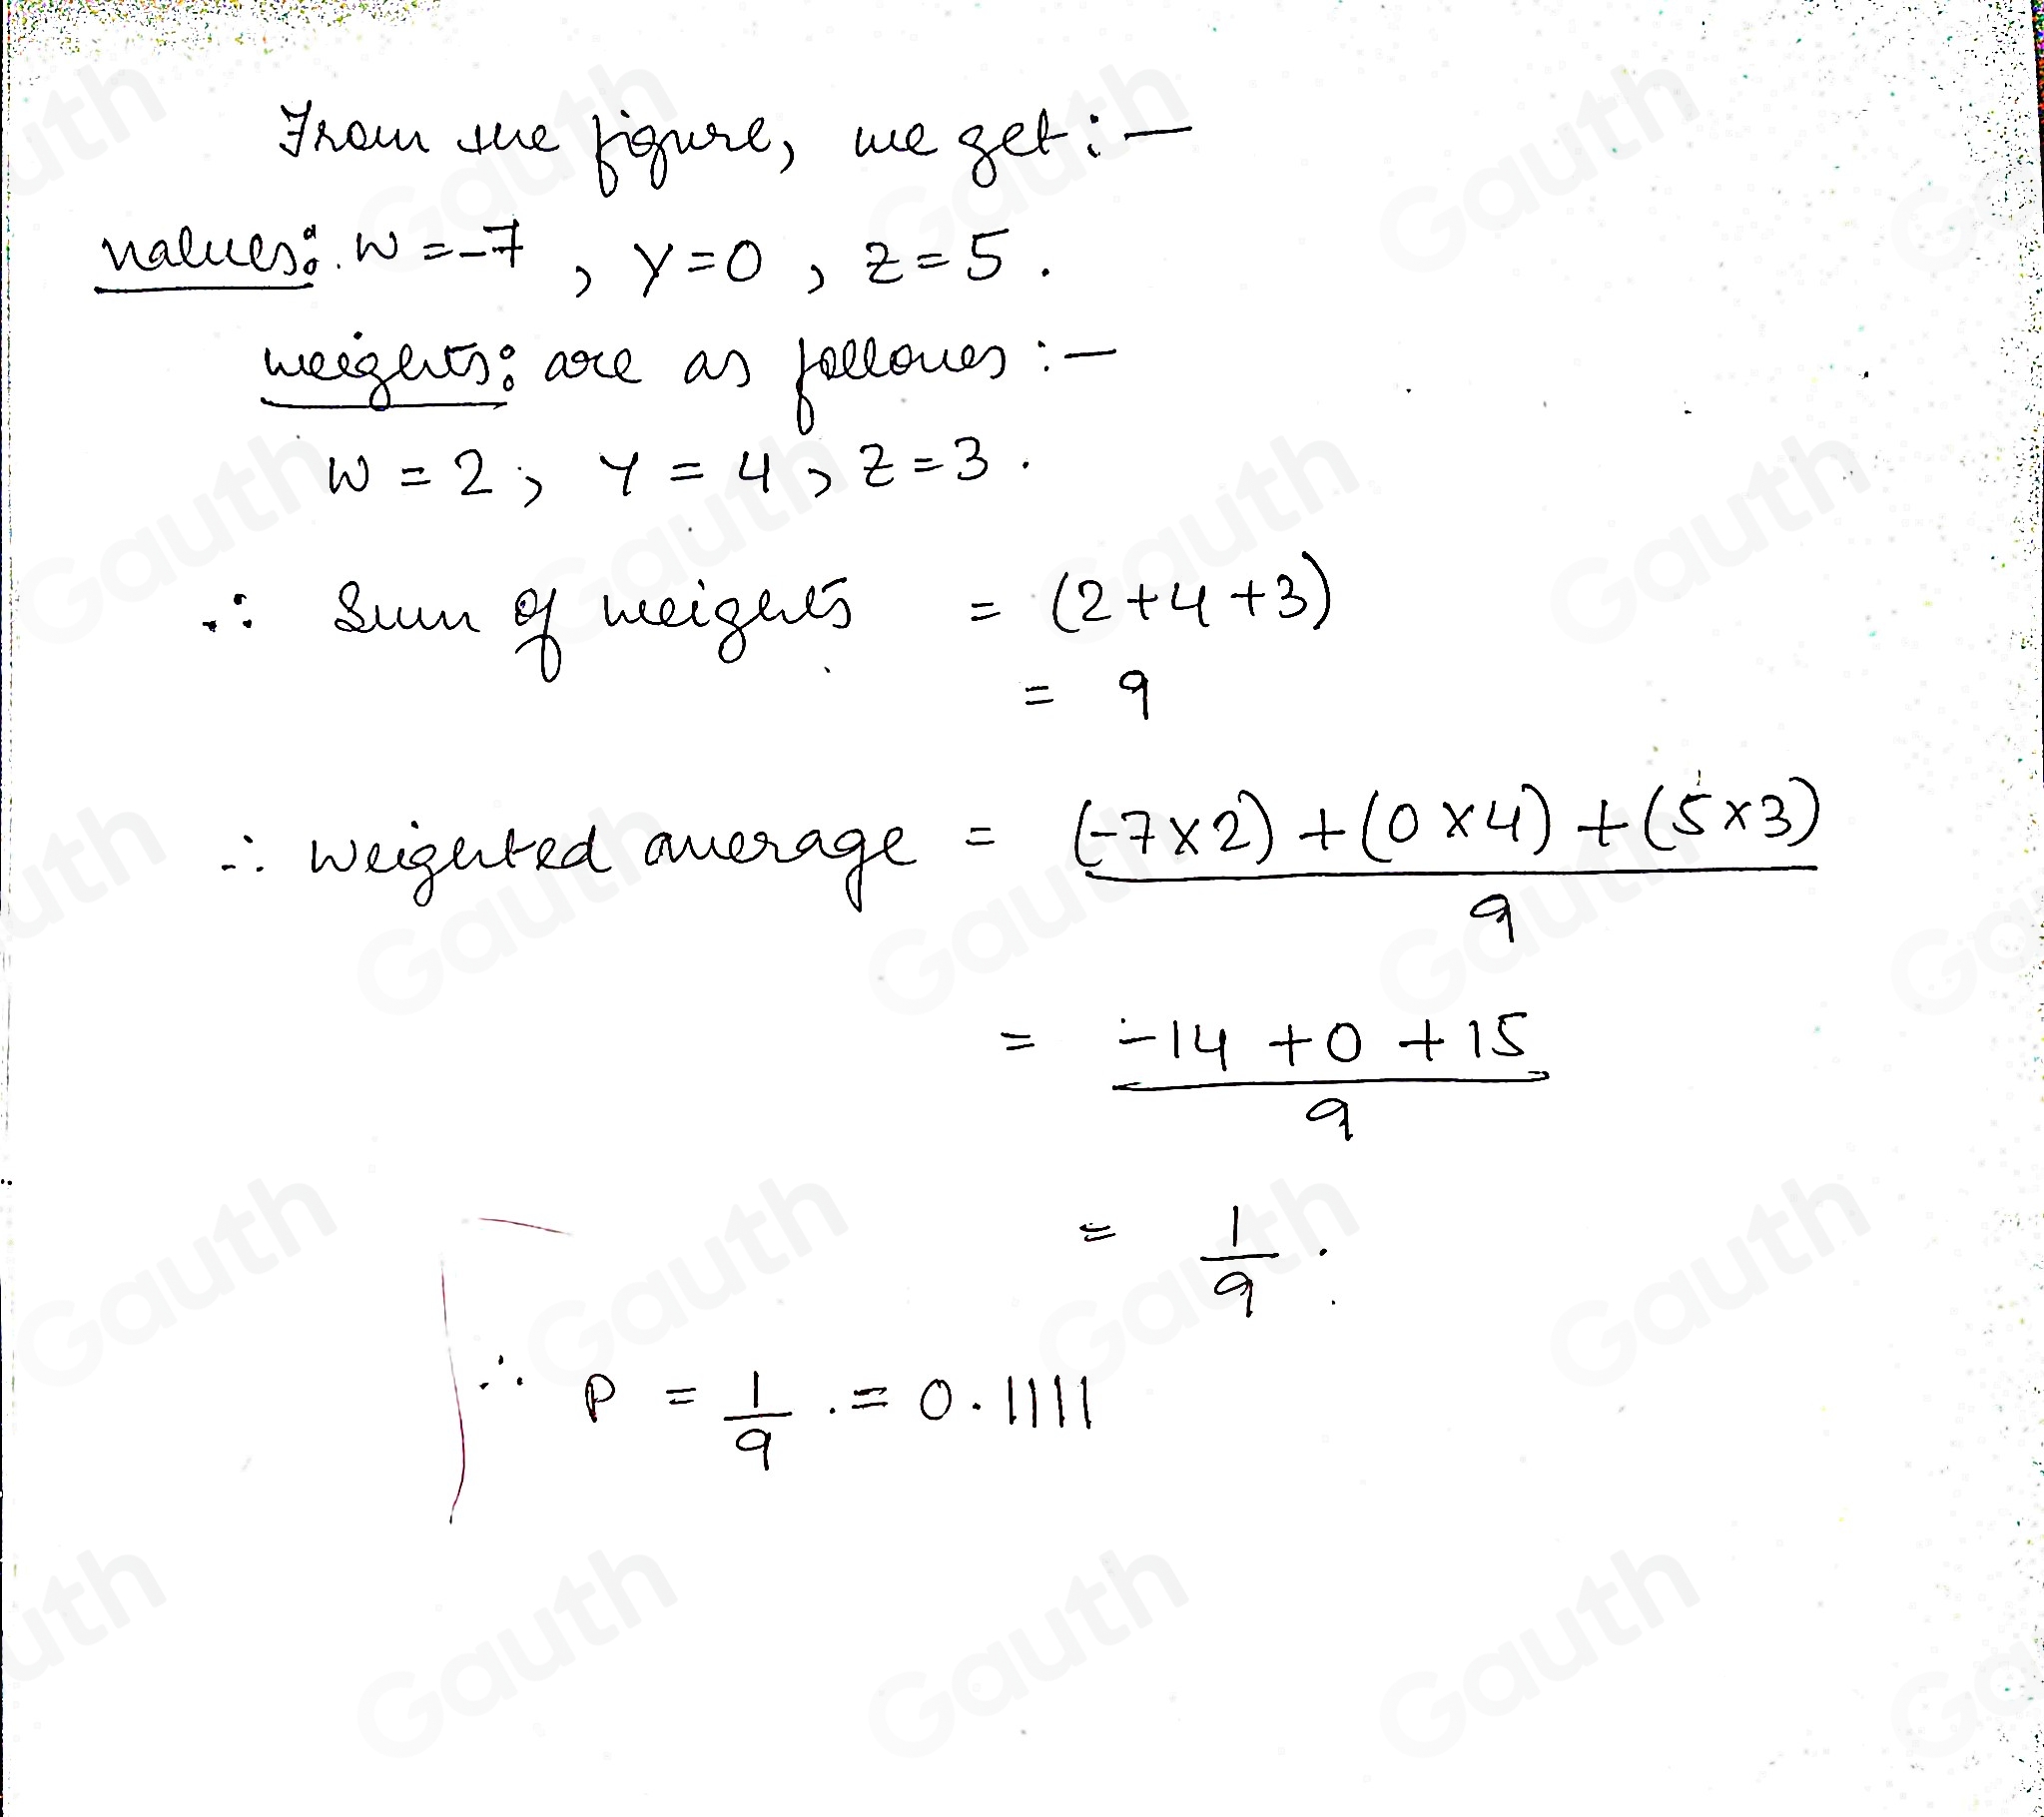 From the figure, we get:—
values: W = -7, Y = 0, Z = 5.
weights: are as follows:—
W = 2, Y = 4, Z = 3.
∴ Sum of weights = (2+4+3)
= 9
∴ Weighted average = (-7×2) + (0×4) + (5×3)
9
= -14 + 0 + 15
9
= 1/9.
∴ P = 1/9. = 0.1111
Gauth